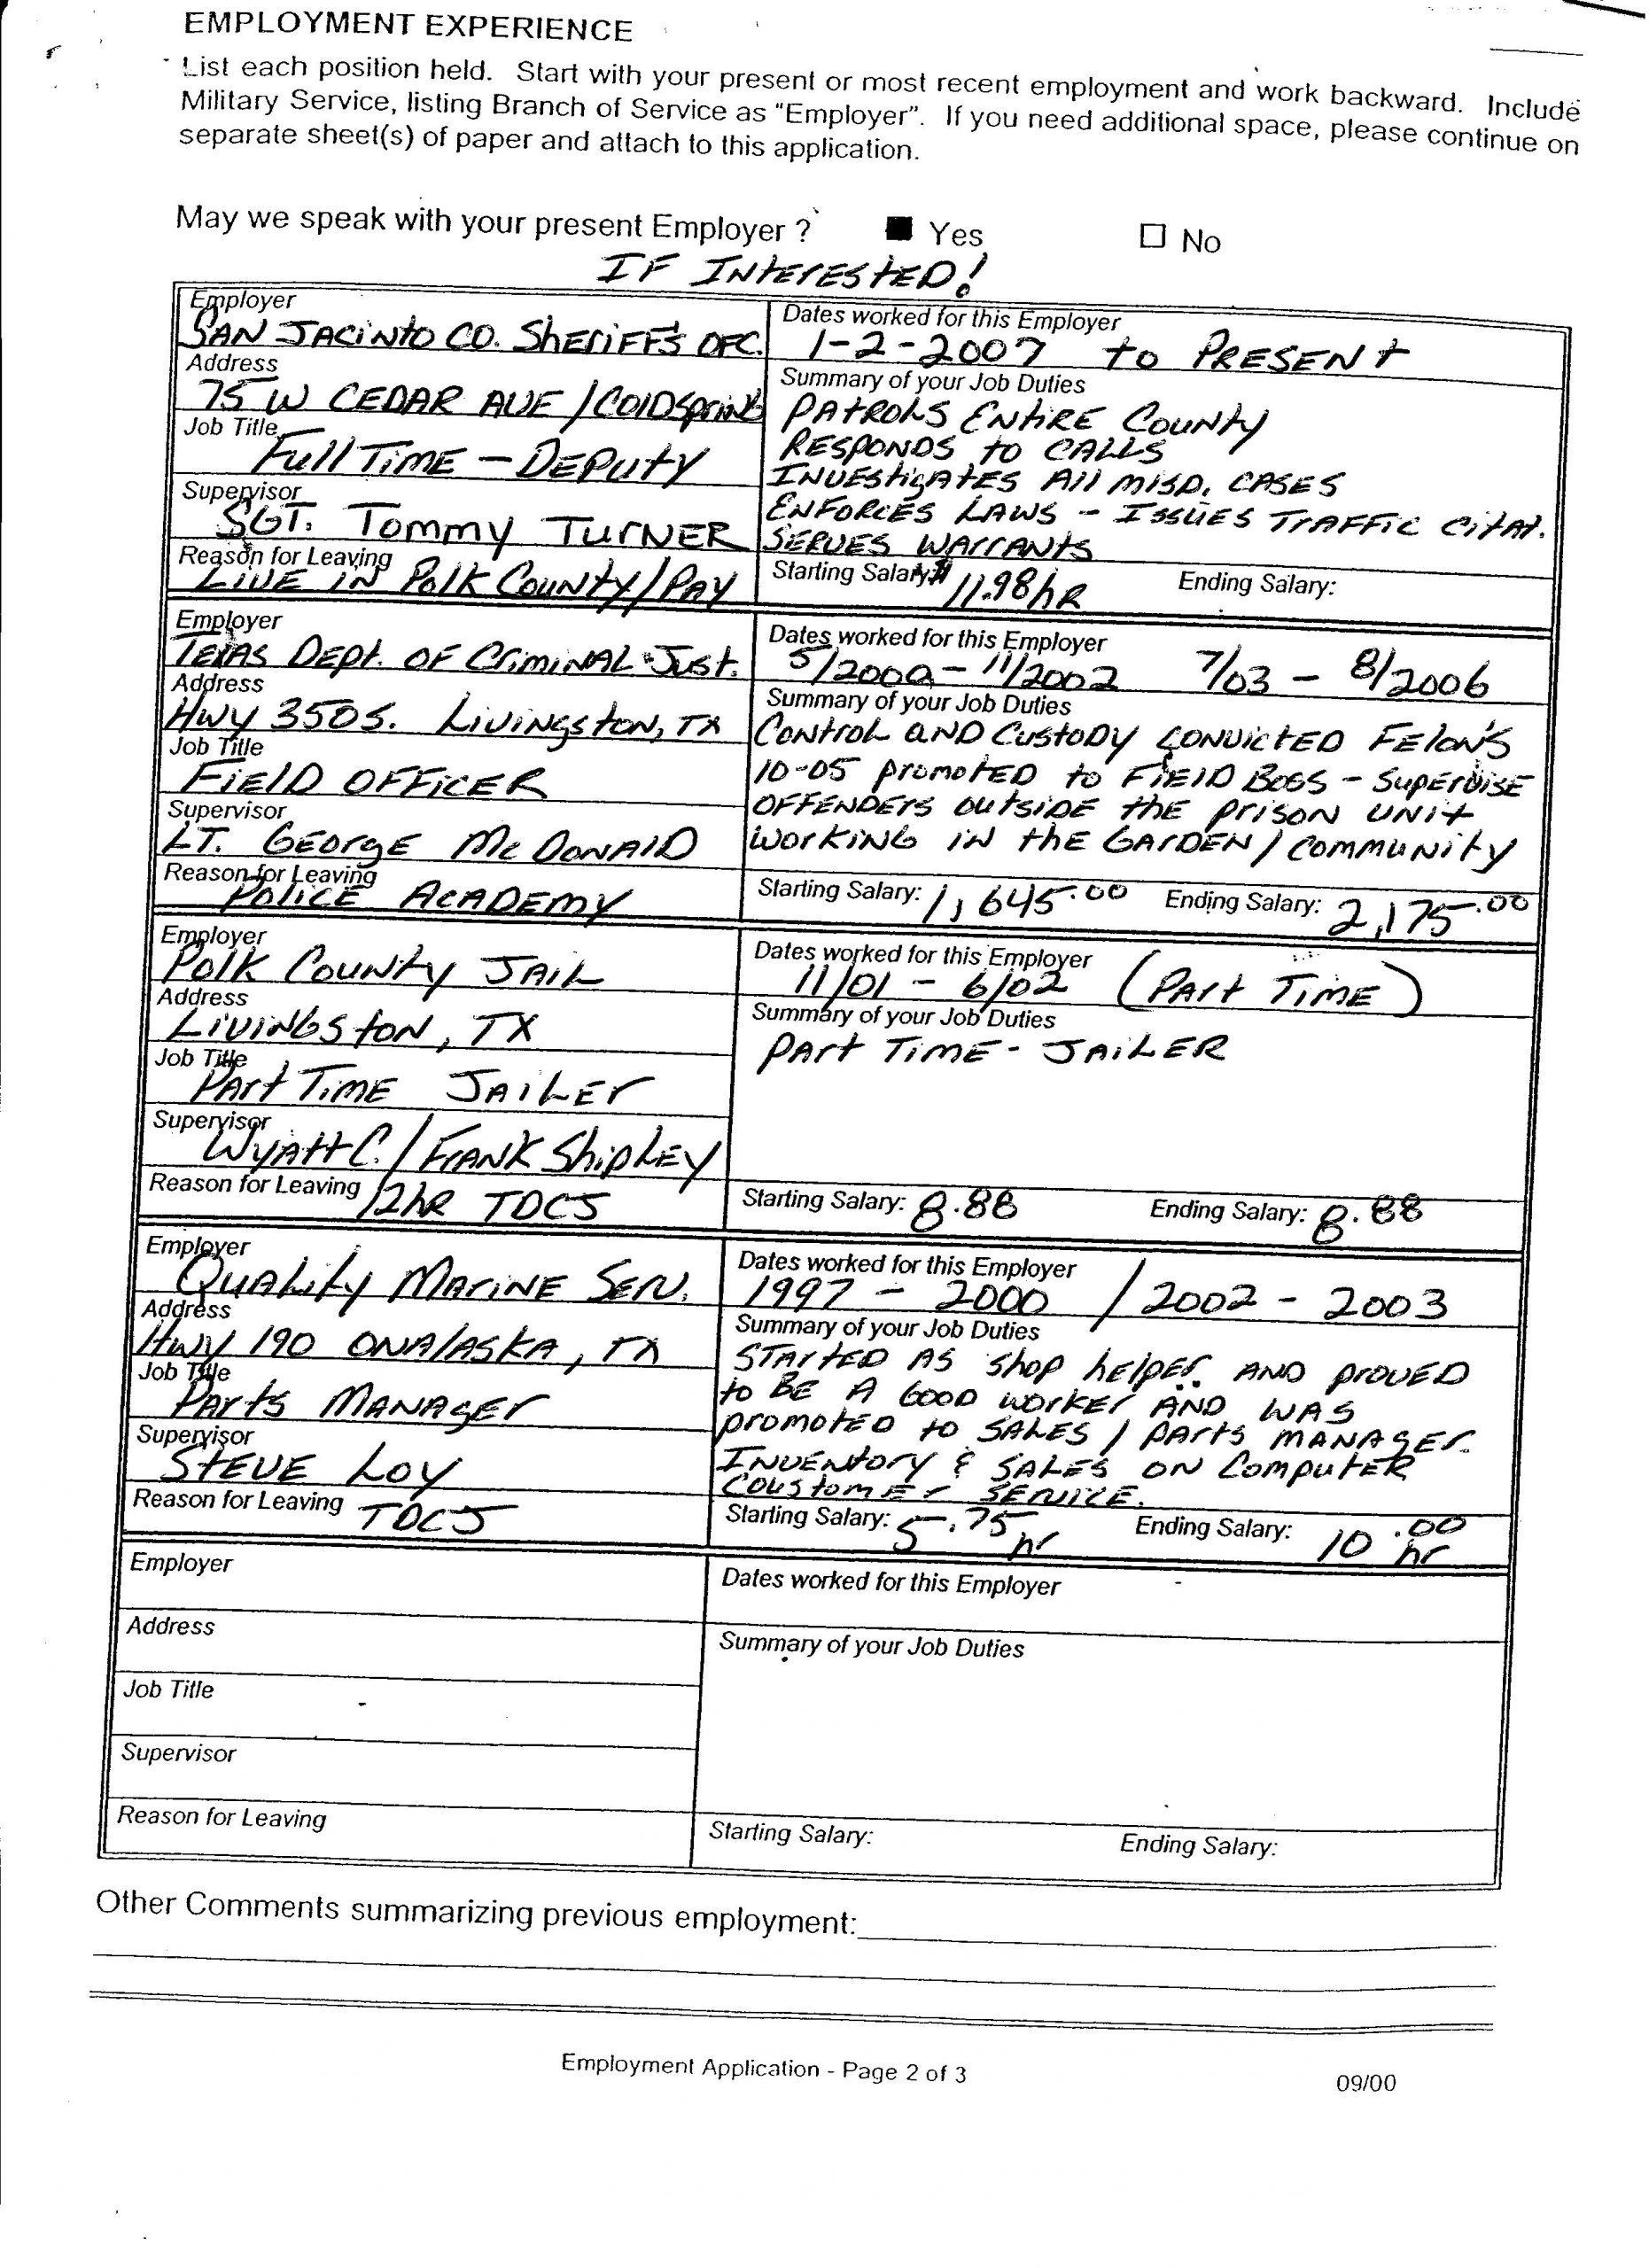 EMPLOYMENT EXPERIENCE
List each position held. Start with your present or most recent employment and work backward. Include
Military Service, listing Branch of Service as "Employer". If you need additional space, please continue on
separate sheet(s) of paper and attach to this application.
May we speak with your present Employer ? ■ Yes □ No
IF INTERESTED!
Employer
SAN JACINTO CO. SHERIFF'S OFC.
Dates worked for this Employer
1-2-2007 to PRESENT
Address
75 W CEDAR AVE / COLDSPRING
Summary of your Job Duties
PATROLS ENTIRE COUNTY
RESPONDS to CALLS
INVESTIGATES All MISD. CASES
ENFORCES LAWS - ISSUES TRAFFIC CITAT.
SERVES WARRANTS
Job Title
Full TIME - DEPUTY
Supervisor
SGT. Tommy TURNER
Reason for Leaving
LIVE IN POLK COUNTY/PAY
Starting Salary: $11.98/hR
Ending Salary:
Employer
TEXAS DEPT. OF CRIMINAL JUST.
Dates worked for this Employer
5/2000 - 11/2002 7/03 - 8/2006
Address
HWY 350S. LIVINGSTON, TX
Summary of your Job Duties
CONTROL AND CUSTODY CONVICTED FELON'S
10-05 promoted to FIELD BOSS - SUPERVISE
OFFENDERS OUTSIDE the PRISON UNIT
WORKING IN the GARDEN / COMMUNITY
Job Title
FIELD OFFICER
Supervisor
LT. GEORGE McDONALD
Reason for Leaving
POLICE ACADEMY
Starting Salary: 1,645.00
Ending Salary: 2,175.00
Employer
POLK COUNTY JAIL
Dates worked for this Employer
11/01 - 6/02 (PART TIME)
Address
LIVINGSTON, TX
Summary of your Job Duties
PART TIME - JAILER
Job Title
PART TIME JAILER
Supervisor
WYATT C. / FRANK SHIPLEY
Reason for Leaving 12hR TDCJ
Starting Salary: 8.88
Ending Salary: 8.88
Employer
QUALITY MARINE SERV.
Dates worked for this Employer
1997 - 2000 / 2002 - 2003
Address
HWY 190 ONALASKA, TX
Summary of your Job Duties
STARTED AS shop helper AND PROVED
to BE A GOOD WORKER AND WAS
promoted to SALES / PARTS MANAGER.
INVENTORY & SALES ON COMPUTER
COUSTOMER SERVICE.
Job Title
PARTS MANAGER
Supervisor
STEVE LOY
Reason for Leaving TDCJ
Starting Salary: 5.75 hr
Ending Salary: 10.00 hr
Employer
Dates worked for this Employer
Address
Summary of your Job Duties
Job Title
Supervisor
Reason for Leaving
Starting Salary:
Ending Salary:
Other Comments summarizing previous employment:
Employment Application - Page 2 of 3
09/00